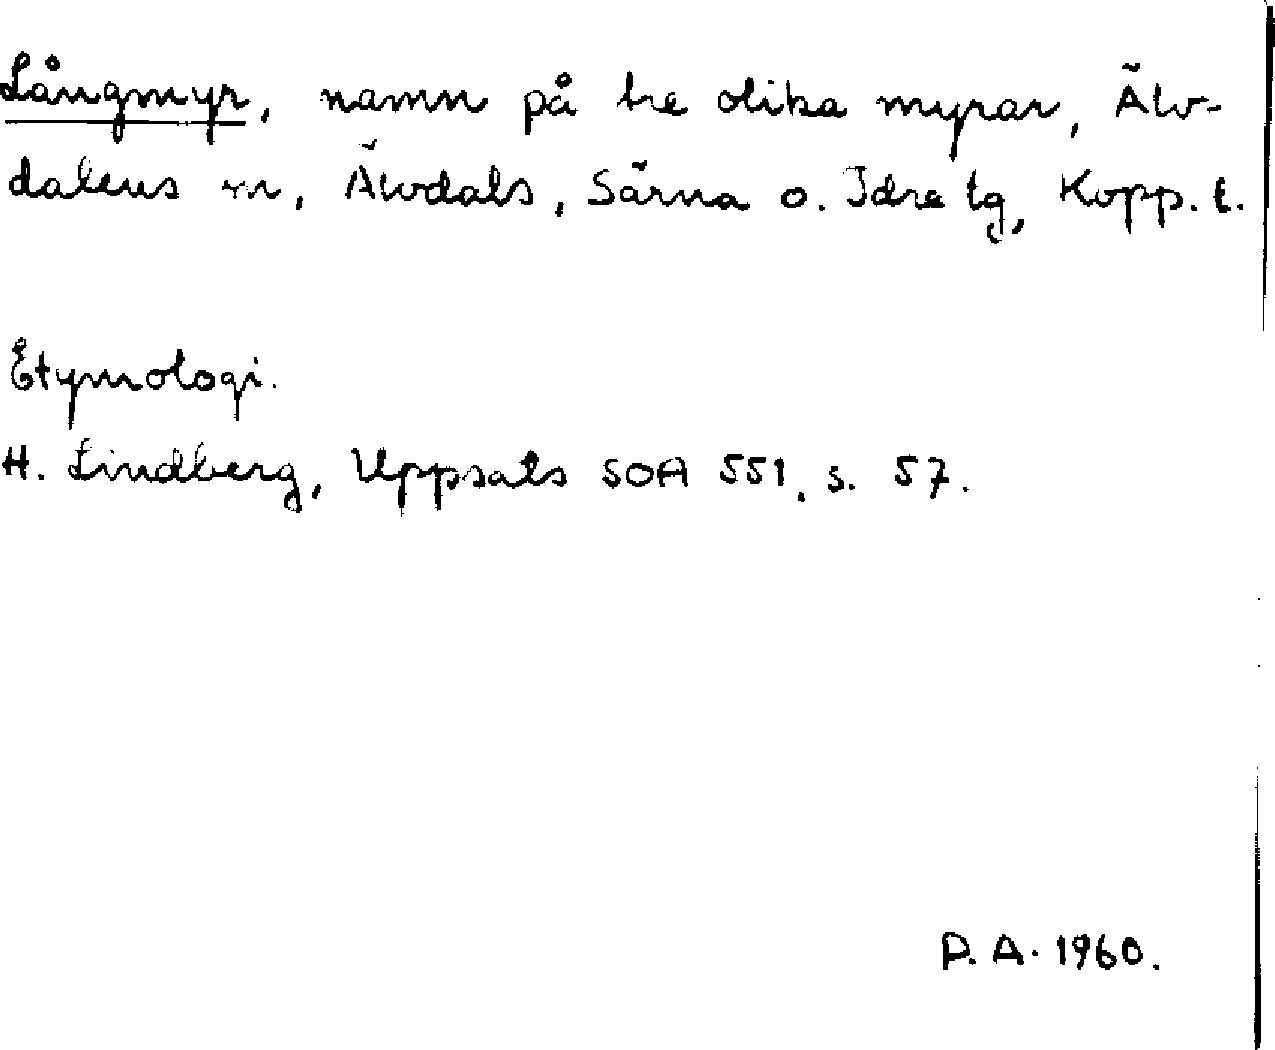 Långmyr, namn på tre olika myrar, Älv-
dalens sn, Älvdals, Särna o. Idre tg, Kopp. l.
Etymologi.
H. Lindberg, Uppsals SOA 551, s. 57.
P. A. 1960.